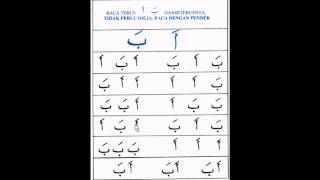 BACA TERUS أَ بَ DAN SETERUSNYA,
TIDAK PERLU DIEJA. BACA DENGAN PENDEK
أَ بَ
بَ أَ بَ أَ بَ أَ
أَ أَ بَ أَ أَ بَ
أَ بَ بَ أَ بَ بَ
بَ أَ بَ أَ بَ أَ
أَ أَ أَ بَ بَ بَ
أَ بَ أَ بَ أَ بَ